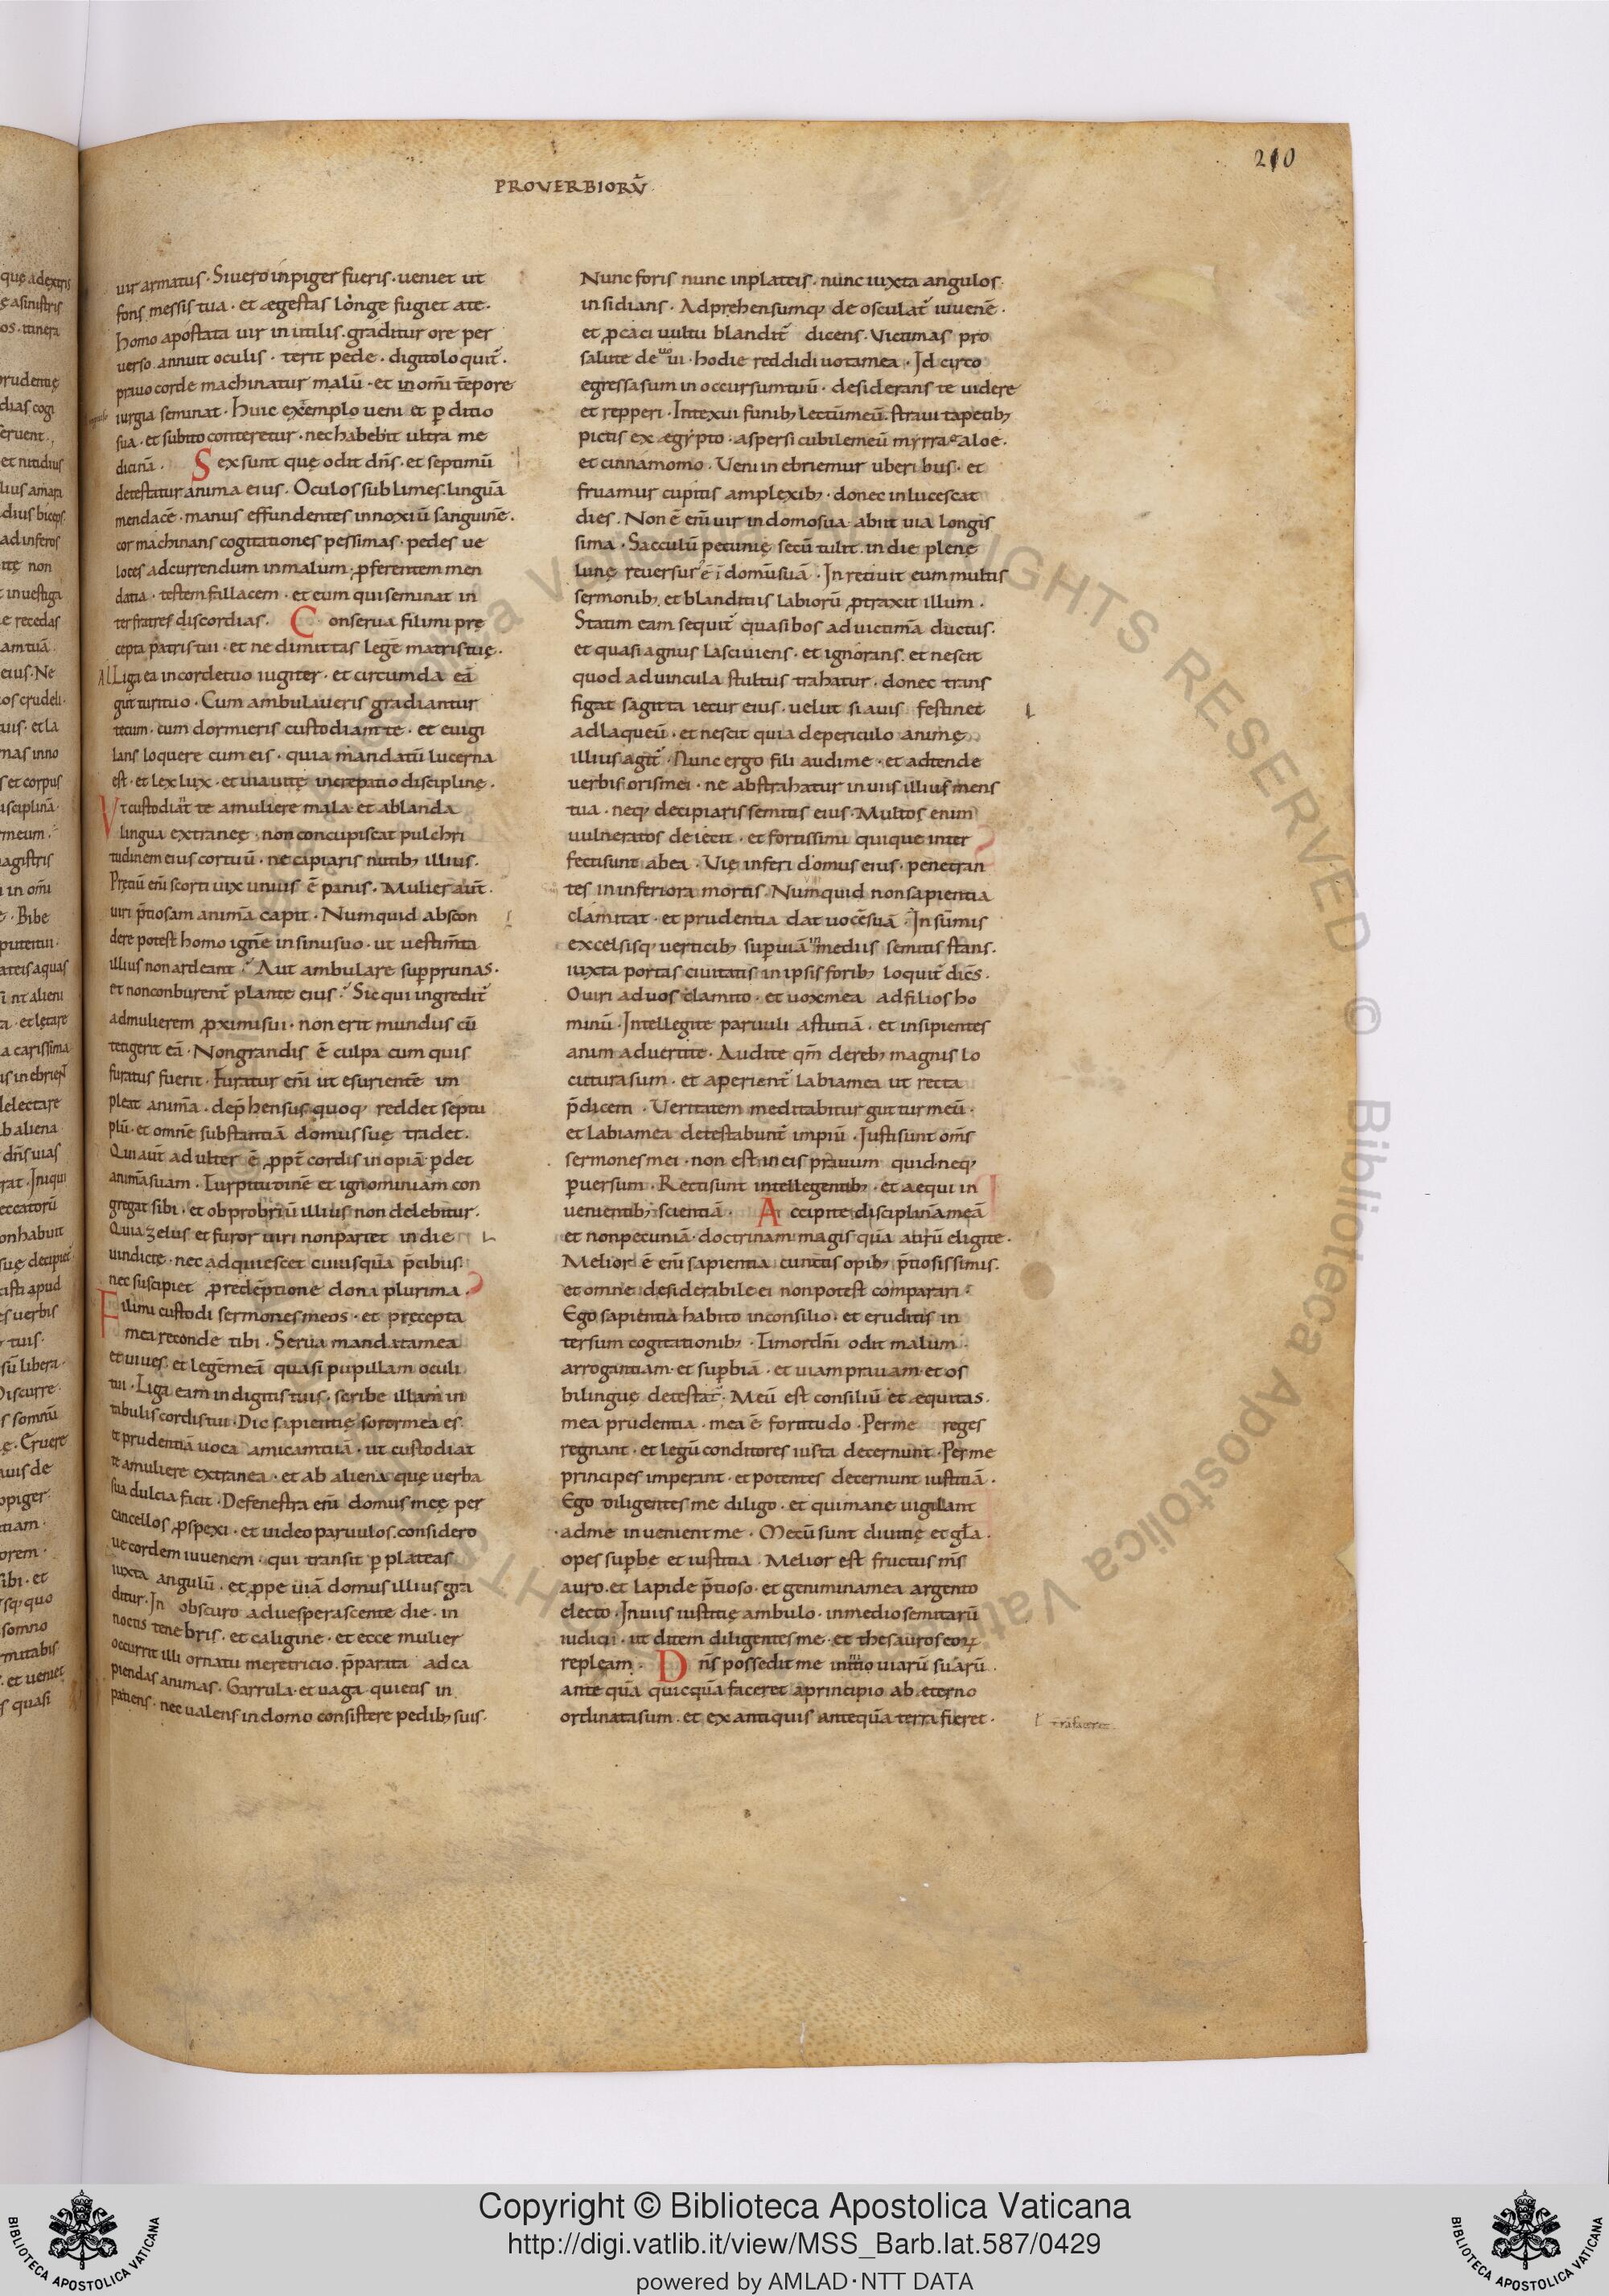 210
PROVERBIORŪ
uir armatus · Siuero inpiger fueris · ueniet ut
fons messis tua · et ægestas longe fugiet ate ·
homo apostata uir inutilis · graditur ore per
uerso · annuit oculis · terit pede · digito loquit᷑ ·
prauo corde machinatur malū · et in om̄i tēpore
iurgia seminat · Huic exēmplo ueni et ꝑditio
sua · et subito conteretur · nec habebit ultra me
dicinā · Sex sunt quę odit dn̄s · et septimū
detestatur anima eius · Oculos sublimes · linguā
mendacē · manus effundentes innoxiū sanguinē ·
cor machinans cogitationes pessimas · pedes ue
loces adcurrendum inmalum · ꝓferentem men
datia · testem fillacem · et eum qui seminat in
ter fratres discordias · Conserua fili mi prę
cepta patris tui · et ne dimittas legē matris tuę ·
Liga ea incordetuo iugiter · et circumda eā
gutturituo · Cum ambulaueris gradiantur
tecum · cum dormieris custodiant te · et euigi
lans loquere cum eis · quia mandatū lucerna
est · et lex lux · et uia uitę increpatio disciplinę ·
Vt custodiāt te amuliere mala · et ablanda
lingua extraneę · non concupiscat pulchri
tudinem eius cortuū · ne cipiaris nutibꝫ illius ·
Pretiū eni scorti uix unius ē panis · Mulier aut̄ ·
uiri p̄tiosam animā capit · Numquid abscon
dere potest homo ignē insinusuo · ut uestim̄ta
illius non ardeant · Aut ambulare supprunas ·
et nonconburent᷑ plante eius · Sic qui ingredit᷑
admulierem ꝓximi sui · non erit mundus cū
tetigerit eā · Nongrandis ē culpa cum quis
furatus fuerit · Furatur eni ut esurientē im
pleat animā · dep̄hensus quoqꝫ reddet septu
plū · et omnē substantiā domus suę tradet ·
Qui aut̄ adulter ē ꝓpt᷑ cordis inopiā ꝑdet
animā suam · Turpitudinē et ignominiam con
gregat sibi · et obprobriū illius non delebitur ·
Quia zelus et furor uiri nonparcet indie
uindictę · nec adquiescet cuiusquā p̄cibus ·
nec suscipiet predēptione dona plurima ·
Fili mi custodi sermones meos · et pręcepta
mea reconde tibi · Serua mandatamea
et uiues · et legēmeā quasi pupillam oculi
tui · Liga eam in digitis tuis · scribe illam in
tabulis cordis tui · Dic sapientię soror mea es ·
et prudentiā uoca amicamtuā · ut custodiat
te amuliere extranea · et ab aliena quę uerba
sua dulcia facit · Defenestra eni domus meę per
cancellos ꝓspexi · et uideo paruulos · considero
uecordem iuuenem · qui transit ꝑ plateas
iuxta angulū · et ꝓpe uiā domus illius gra
ditur · In obscuro aduesperascente die · in
noctis tenebris · et caligine · et ecce mulier
occurrit illi ornatu meretricio p̄parata adca
piendas animas · Garrula · et uaga · quietis in
patiens · nec ualens indomo consistere pedibꝫ suis ·
Nunc foris nunc inplateis · nunc iuxta angulos ·
insidians · Adprehensumqꝫ deosculat᷑ iuuenē ·
et ꝓcaci uultu blandit᷑ dicens · Victimas pro
salute deuoui · hodie reddidi uotamea · Id circo
egressasum inoccursumtuū · desiderans te uidere
et repperi · Intexui funibꝫ lectūmeū · straui tapetibꝫ
pictis ex ægypto · aspersi cubilemeū myrra et aloe ·
et cinnamomo · Veni inebriemur uberibus · et
fruamur cupitis amplexibꝫ · donec inlucescat
dies · Non ē eni uir indomosua · abiit uia longis
sima · Sacculū pecunię secū tulit · in die plenę
lunę reuersurꝰ ē ī domūsuā · Inretiuit eum multis
sermonibꝫ et blanditiis labiorū ꝓtraxit illum ·
Statim eam sequit᷑ quasi bos aduictimā ductus ·
et quasi agnus lasciuiens · et ignorans · et nescit
quod aduincula stultus trahatur · donec trans
figat sagitta iecur eius · uelut si auis festinet
adlaqueū · et nescit quia depericulo animę
illius agit᷑ · Nunc ergo fili audime · et adtende
uerbis orismei · ne abstrahatur inuiis illius mens
tua · neqꝫ decipiaris semitis eius · Multos enim
uulneratos deiecit · et fortissimi quique inter
fecti sunt abea · Vię inferi domus eius · penetran
tes in inferiora mortis · Numquid non sapientia
clamitat · et prudentia dat uocēsuā · In sūmis
excelsisqꝫ uerticibꝫ supuiā in mediis semitis stans ·
iuxta portas ciuitatis in ipsis foribꝫ loquit᷑ dicēs ·
O uiri aduos clamito · et uoxmea adfilios ho
minū · Intellegite paruuli astutiā · et insipientes
animaduertite · Audite qm̄ derebꝫ magnis lo
cuturasum · et aperient᷑ labiamea ut recta
p̄dicem · Veritatem meditabitur guttur meū ·
et labiamea detestabunt᷑ impiū · Iusti sunt om̄s
sermones mei · non est ineis prauum quid · neqꝫ
ꝑuersum · Recti sunt intellegentibꝫ · et aequi in
uenientibꝫ scientiā · Accipite disciplināmeā
et nonpecuniā · doctrinam magis quā aurū eligite ·
Melior ē eni sapientia cunctis opibꝫ p̄tiosissimis ·
et omne desiderabile ei nonpotest comparari ·
Ego sapientia habito inconsilio · et eruditis in
tersum cogitationibꝫ · Timor dn̄i odit malum ·
arrogantiam · et supbiā · et uiam prauam · et os
bilinguę detestat᷑ · Meū est consiliū et æquitas ·
mea prudentia · mea ē fortitudo · Per me reges
regnant · et legū conditores iusta decernunt · Per me
principes imperant · et potentes decernunt iustitiā ·
Ego diligentes me diligo · et quimane uigilant
adme inuenient me · Mecū sunt diuitię et gl̄a ·
opes supbe et iustitia · Melior est fructus m̄s
auro · et lapide p̄tioso · et geniminamea argento
electo · Inuiis iustitię ambulo · inmediosemitarū
iudicii · ut ditem diligentes me · et thesauros eoꝝ
repleam · Dn̄s possedit me initio uiarū suarū ·
ante quā quicquā faceret aprincipio ab eterno
ordinatasum · et ex antiquis antequā terra fieret ·
Copyright © Biblioteca Apostolica Vaticana
http://digi.vatlib.it/view/MSS_Barb.lat.587/0429
powered by AMLAD·NTT DATA
BIBLIOTECA APOSTOLICA VATICANA
BIBLIOTECA APOSTOLICA VATICANA